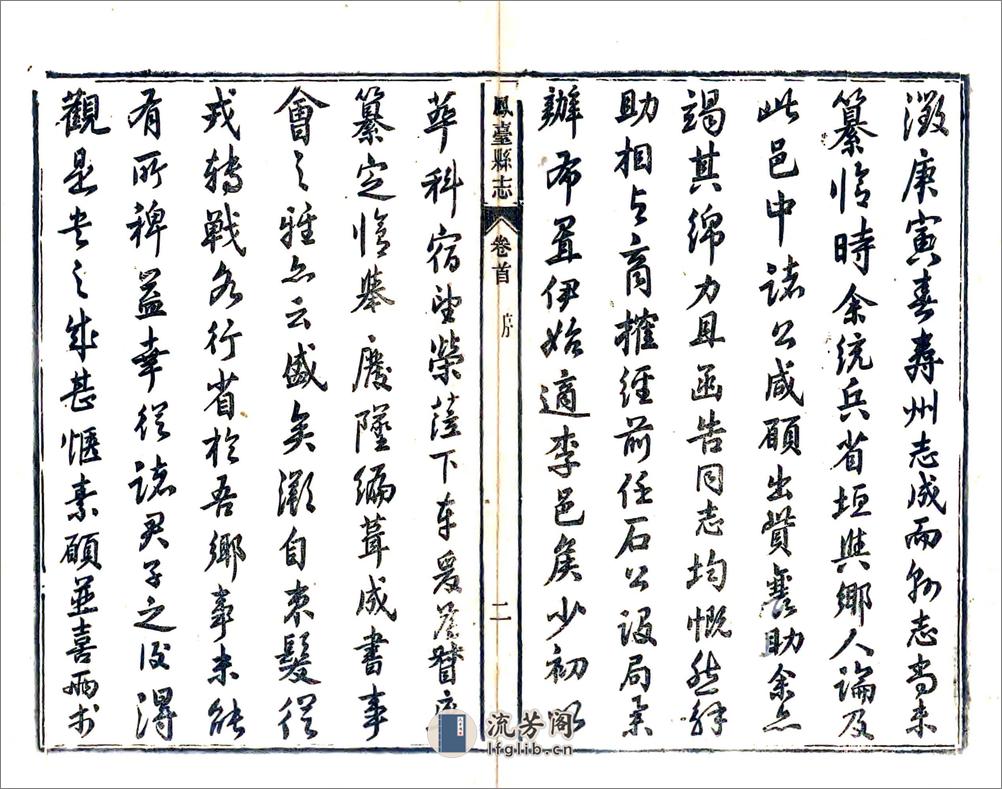 徵庚寅春壽州志成而縣志尚未
纂脩時余統兵省垣與鄉人論及
此邑中諸公咸願出貲襄助余亦
竭其綿力且函告同志均慨然解
助相與商搉經前任石公設局集
辦布置伊始適李邑矦少初以
華科宿望榮蒞下車爰
纂定脩舉廢墜編葺成書事
會之雅亦云盛矣灝自束髮從
戎轉戰各行省於吾鄉事未能
有所裨益幸從諸君子之後得
觀是書之成甚愜素願並喜兩
鳳臺縣志
卷首
序
二
流芳阁
lfglib.cn